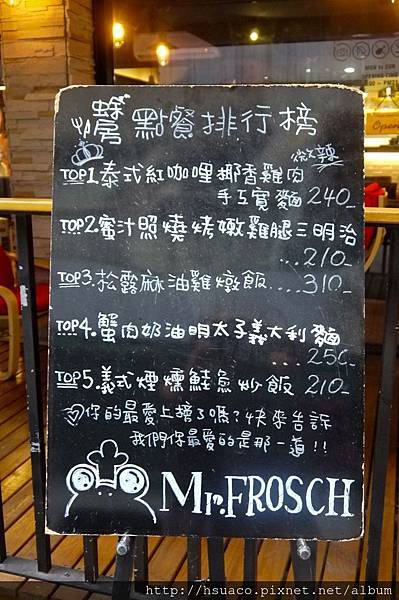 點餐排行榜
微辣
TOP1.泰式紅咖哩椰香雞肉
手工寬麵240_
TOP2.蜜汁照燒烤嫩雞腿三明治
...210_
TOP3.松露麻油雞燉飯....310_
TOP4.蟹肉奶油明太子義大利麵
....250_
TOP5.義式煙燻鮭魚炒飯 210_
你的最愛上榜了嗎?快來告訴
我們你最愛的是那一道!!
Mr.FROSCH
http://hsuaco.pixnet.net/album